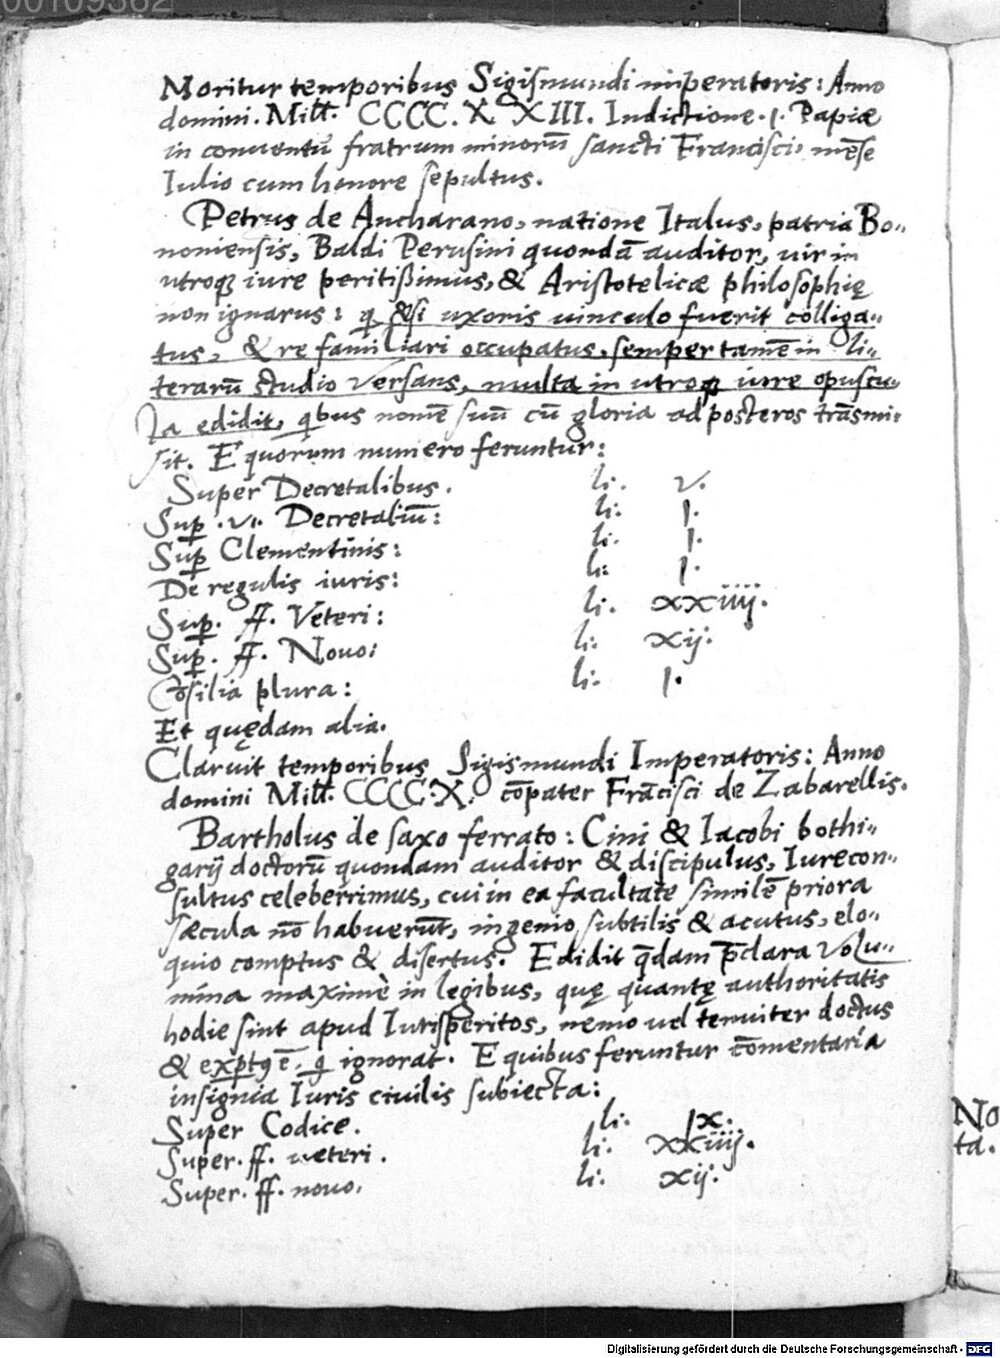 00109362
Moritur temporibus Sigismundi imperatoris: Anno
domini. Mill̄t. CCCC. X XIII. Indictione. I. Papiæ
in conuentū fratrum minorū sancti Francisci, mēse
Iulio cum honore sepultus.
Petrus de Ancharano, natione Italus, patria Bo„
noniensis, Baldi Perusini quondā auditor, uir in
utroqꝫ iure peritißimus, & Aristotelicæ philosophię
non ignarus: q̇ &si uxoris uinculo fuerit colliga„
tus, & re familiari occupatus, semper tamē in li„
terarū studio versans, multa in utroqꝫ iure opuscu„
la edidit, q̇bus nomē suū cū gloria ad posteros trāsmi„
sit. E quorum numero feruntur:
Super Decretalibus. li. v.
Suꝑ .vi. Decretaliū: li: I.
Suꝑ Clementinis: li: I.
De regulis iuris: li: I.
Suꝑ. ff. Veteri: li. xxiiij.
Suꝑ. ff. Nouo: li: xij.
Cōsilia plura: li: I.
Et quędam alia.
Claruit temporibus Sigismundi Imperatoris: Anno
domini Mill̄t. CCCC.X. cōpater Frācisci de Zabarellis.
Bartholus de saxo ferrato: Cini & Iacobi bothi„
garij doctorū quondam auditor & discipulus, Iurecon„
sultus celeberrimus, cui in ea facultate similē priora
sæcula nō habuerūt, ingenio subtilis & acutus, elo„
quio comptus & disertus. Edidit q̄dam p̄clara volu„
mina maximè in legibus, quę quantę authoritatis
hodie sint apud Iurisperitos, nemo uel tenuiter doctus
& exꝑtꝯ ē, q̇ ignorat. E quibus feruntur cōmentaria
insignia Iuris ciuilis subiecta:
Super Codice. li: IX.
Super. ff. ueteri. li: xxiiij.
Super. ff. nouo. li: xij.
No
ta.
Digitalisierung gefördert durch die Deutsche Forschungsgemeinschaft - DFG